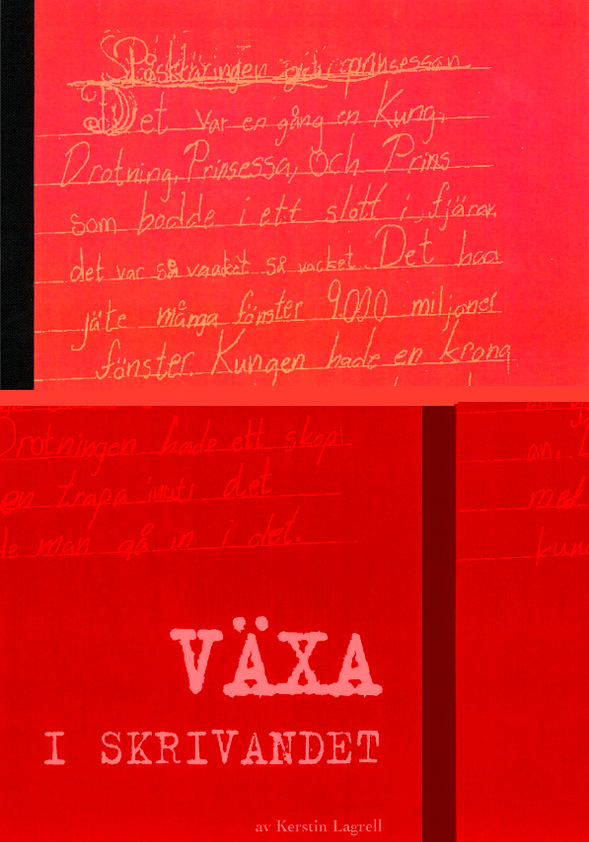 Påskkäringen och prinsessan
Det var en gång en Kung,
Drotning, Prinsessa, Och Prins
som bodde i ett slott i fjäran,
det var så vackert så vacket. Det had
jäte många fönster 9.000 miljoner
fönster. Kungen hade en krona
Drotningen hade ett skåp
en trapa inuti det
man gå in i det.
an.
med
kung
VÄXA
I SKRIVANDET
av Kerstin Lagrell